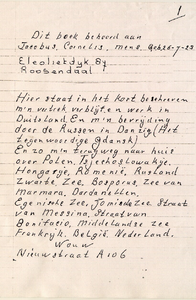 1
Dit boek behoord aan
Jacobus, Cornelis, mens, Geb 26-7-23
By
Roosendaal
Hier staat in het kort beschreven
m'n vertrek verblijf en werk in
Duitsland En m'n bevrijding
door de Russen in Danzig (Het
tegenwoordige Gdansk)
En zo m'n terugweg naar huis
over Polen, Tsjechoslowakije,
Hongarije, Romenië, Rusland
Zwarte Zee, Bosporus, Zee van
Marmara, Dardanellen,
Egeische Zee, Jonische Zee, Straat
van Messina, Straat van
Bonifacio, Middelandse zee
Frankrijk, België, Nederland.
Wouw
Nieuwstraat A106